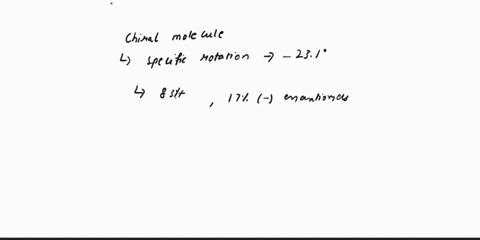 Chiral molecule
↳ specific rotation → - 23.1°
↳ 83% , 17% (-) enantiomers